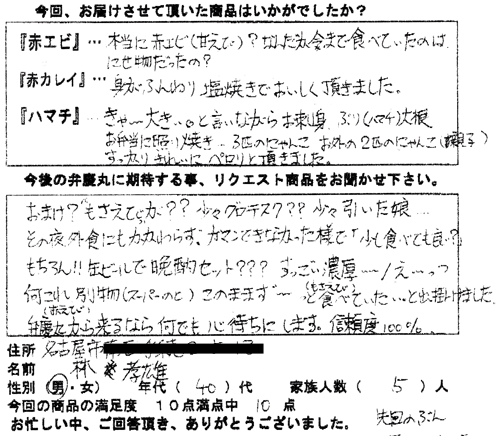 今回、お届けさせて頂いた商品はいかがでしたか？
『赤エビ』… 本当に赤エビ(甘えび)？なんだ今まで食べていたのは
にせ物だったの？
『赤カレイ』… 身がふんわり塩焼きでおいしく頂きました。
『ハマチ』… きゃ〜大きい。と言いながらお刺身 ぶり(ハマチ)大根
お弁当に照り焼き 3匹のにゃんこ お外の2匹のにゃんこ(親子)
すっかりきれいにペロリと頂きました。
今後の弁慶丸に期待する事、リクエスト商品をお聞かせ下さい。
おまけ？"もさえび"が？？ 少々グロテスク？？？ 少々引いた娘…
その夜外食にもかかわらず、ガマンできなかった様で「少し食べても良い？」
もちろん!! 缶ビールで晩酌セット？？？ すっごい濃厚〜！え〜っっ
何コレ別物(スーパーのと) このままず〜っと食べていたい。と
(もさえび)
弁慶丸から来るなら何でも心待ちにします。信頼度100%
住所 名古屋市
名前 林 孝雄
性別 (男・女) 年代 (40) 代 家族人数 (5) 人
今回の商品の満足度 10点満点中 10 点
お忙しい中、ご回答頂き、ありがとうございました。